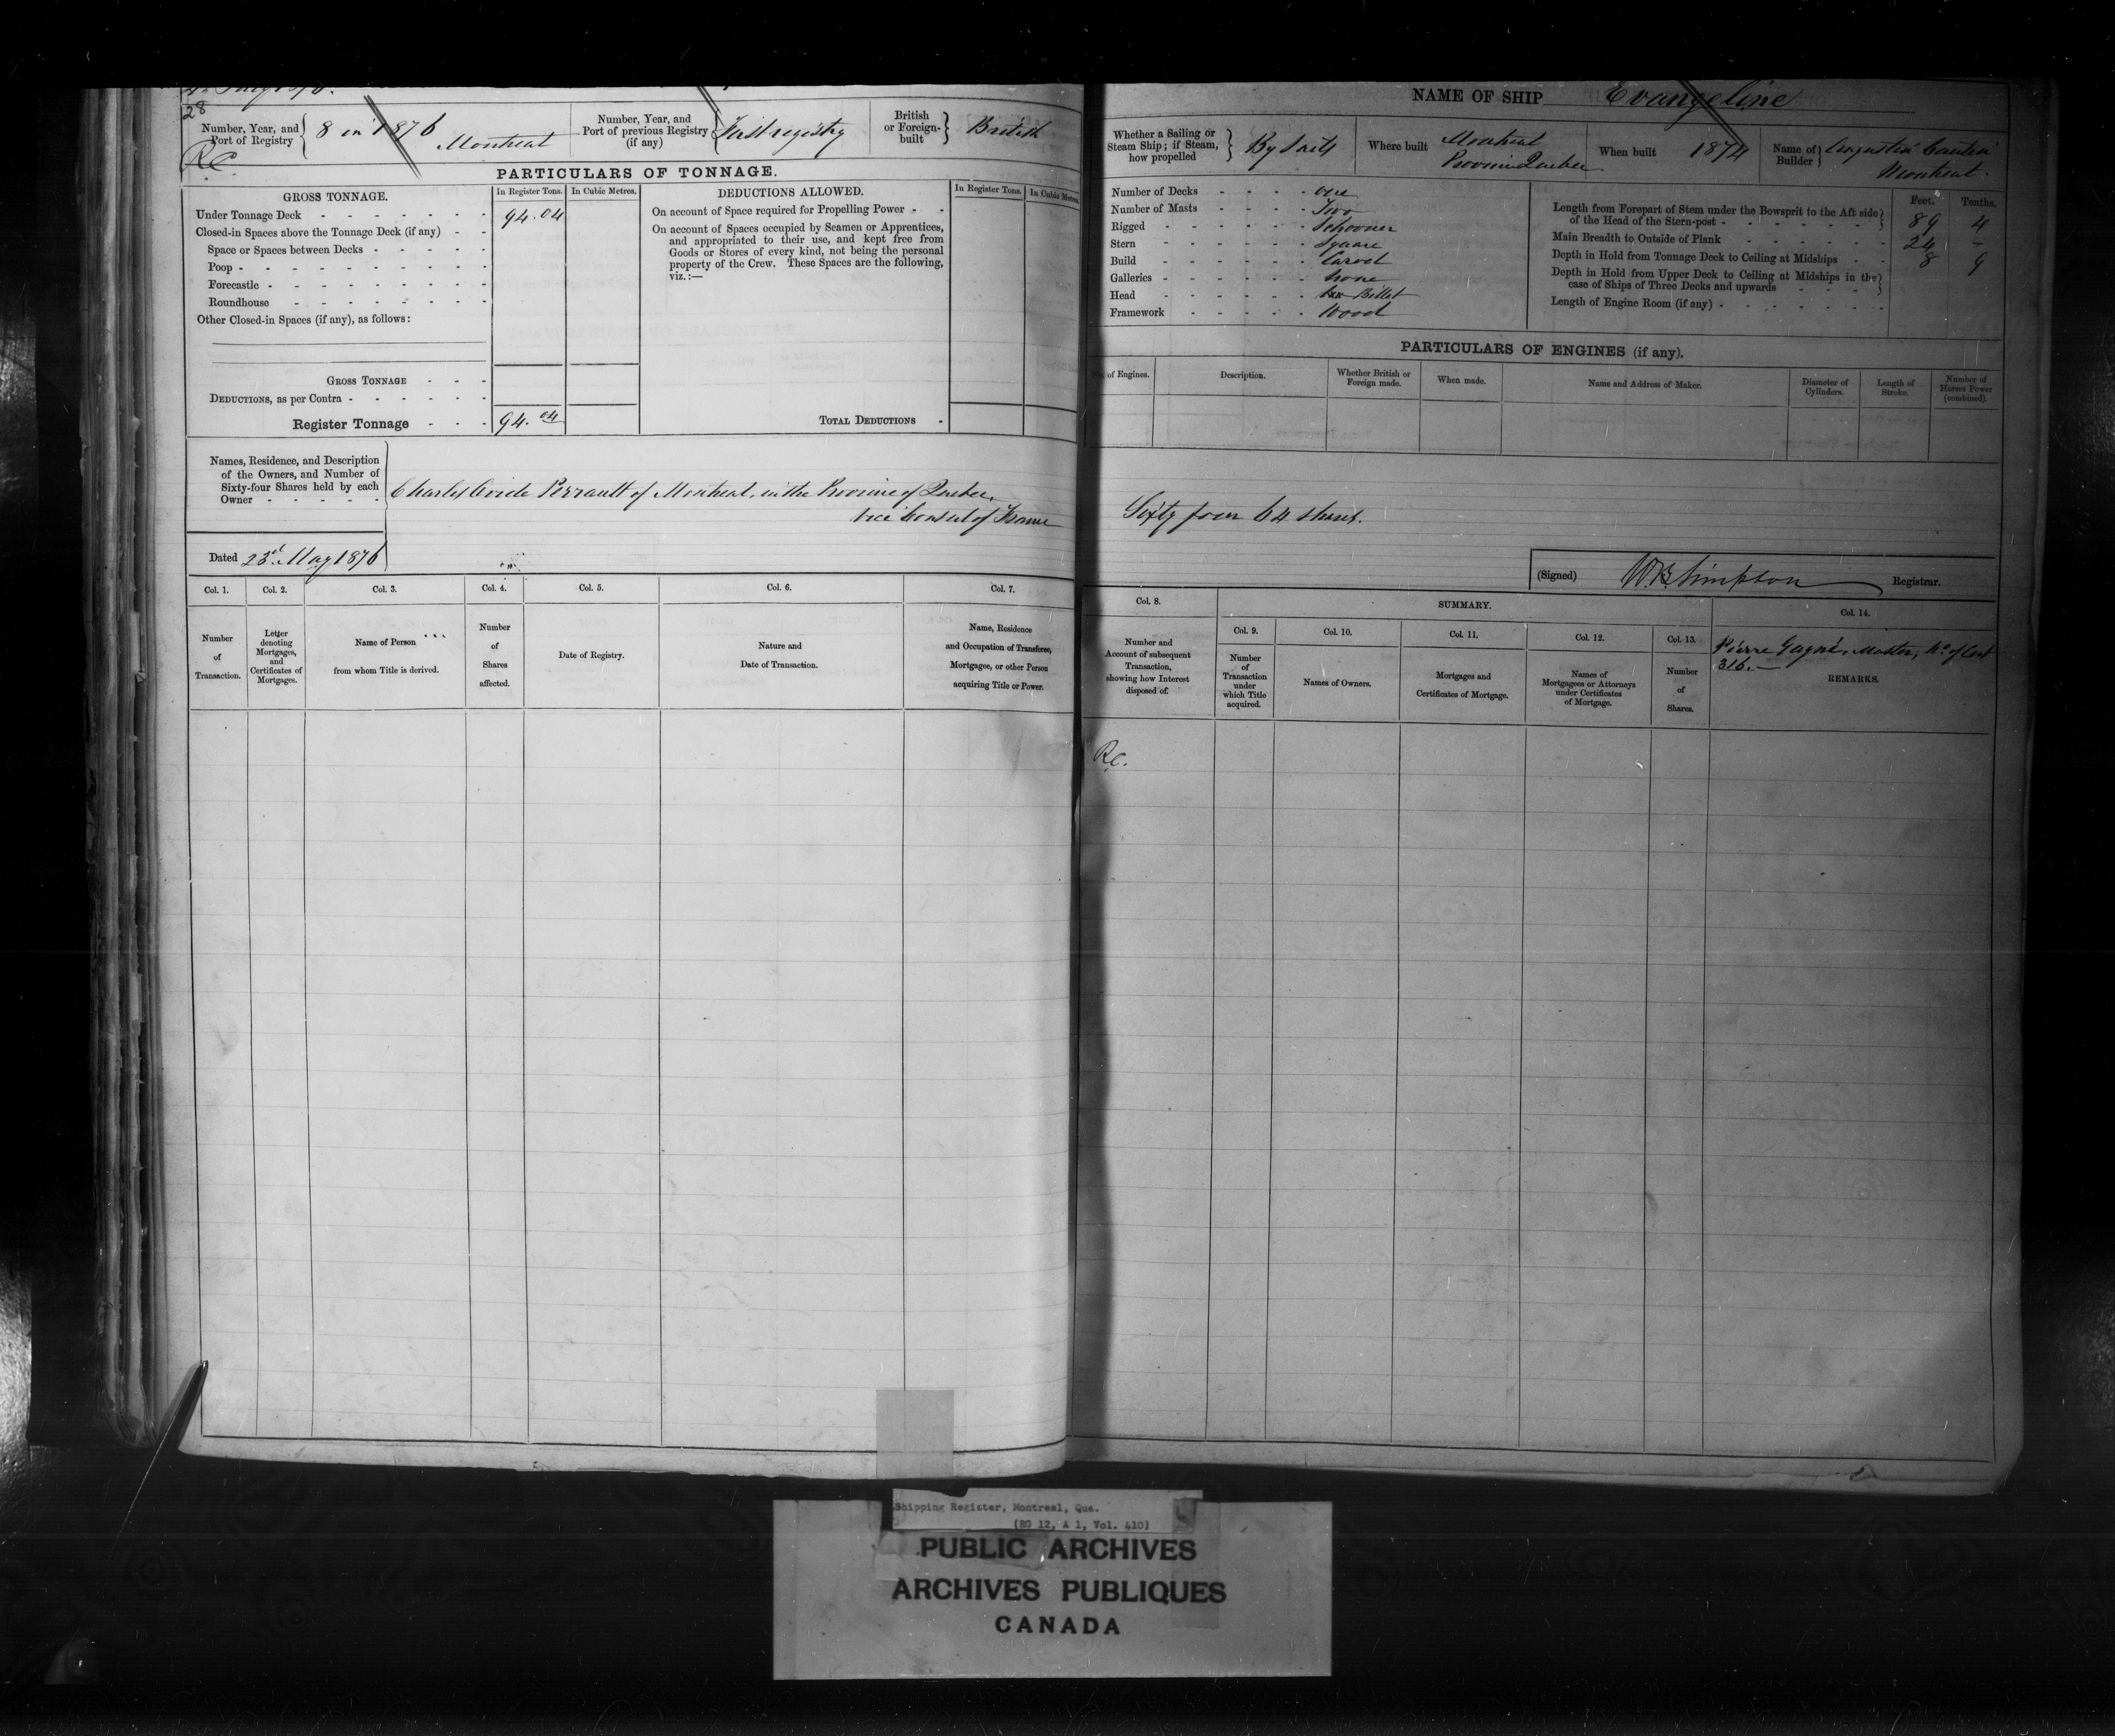 28
Number, Year, and Port of Registry 8 in 1876 Montreal
Number, Year, and Port of previous Registry (if any) First registry
British or Foreign-built British
R.C.
PARTICULARS OF TONNAGE.
GROSS TONNAGE. In Register Tons. In Cubic Metres.
Under Tonnage Deck 94.04
Closed-in Spaces above the Tonnage Deck (if any)
Space or Spaces between Decks
Poop
Forecastle
Roundhouse
Other Closed-in Spaces (if any), as follows:
GROSS TONNAGE
DEDUCTIONS, as per Contra
Register Tonnage 94.04
DEDUCTIONS ALLOWED. In Register Tons. In Cubic Metres
On account of Space required for Propelling Power
On account of Spaces occupied by Seamen or Apprentices,
and appropriated to their use, and kept free from
Goods or Stores of every kind, not being the personal
property of the Crew. These Spaces are the following,
viz.:—
TOTAL DEDUCTIONS
Names, Residence, and Description
of the Owners, and Number of
Sixty-four Shares held by each
Owner
Charles Ovide Perrault of Montreal, in the Province of Quebec,
Vice Consul of France
Dated 23rd May 1876
Col. 1. Col. 2. Col. 3. Col. 4. Col. 5. Col. 6. Col. 7.
Number of Transaction.
Letter denoting Mortgages, and Certificates of Mortgages.
Name of Person from whom Title is derived.
Number of Shares affected.
Date of Registry.
Nature and Date of Transaction.
Name, Residence and Occupation of Transferee, Mortgagee, or other Person acquiring Title or Power.
NAME OF SHIP Evangeline
Whether a Sailing or Steam Ship; if Steam, how propelled By Sails
Where built Montreal Province Quebec
When built 1874
Name of Builder Augustin Cantin Montreal.
Number of Decks one
Number of Masts Two
Rigged Schooner
Stern Square
Build Carvel
Galleries none
Head Billet
Framework Wood
Feet. Tenths.
Length from Forepart of Stem under the Bowsprit to the Aft side of the Head of the Stern-post 89 4
Main Breadth to Outside of Plank 24 -
Depth in Hold from Tonnage Deck to Ceiling at Midships 8 9
Depth in Hold from Upper Deck to Ceiling at Midships in the case of Ships of Three Decks and upwards
Length of Engine Room (if any)
PARTICULARS OF ENGINES (if any).
of Engines. Description. Whether British or Foreign made. When made. Name and Address of Maker. Diameter of Cylinders. Length of Stroke. Number of Horses Power (combined).
Sixty four 64 shares.
(Signed) W.B. Simpson Registrar.
Col. 8. SUMMARY. Col. 14.
Col. 9. Col. 10. Col. 11. Col. 12. Col. 13.
Number and Account of subsequent Transaction, showing how Interest disposed of.
Number of Transaction under which Title acquired.
Names of Owners.
Mortgages and Certificates of Mortgage.
Names of Mortgagees or Attorneys under Certificates of Mortgage.
Number of Shares.
Pierre Gagné, Master, No. of Cert
316.—
REMARKS.
R.C.
Shipping Register, Montreal, Que.
(RG 12, A 1, Vol. 410)
PUBLIC ARCHIVES
ARCHIVES PUBLIQUES
CANADA